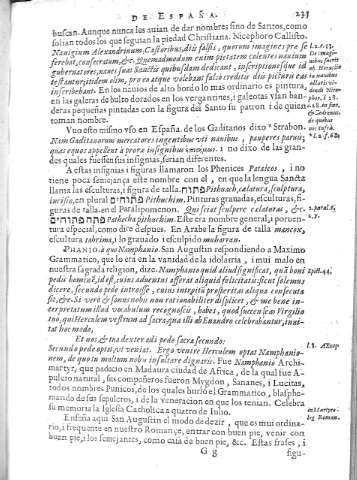 DE ESPAÑA. 233
buscan. Aunque nunca les auian de dar nombres sino de Santos, como
solian todos los que seguian la piedad Christiana. Nicephoro Callisto.
Nauigium Alexandrinum, Castoribus, diis falsis, quorum imagines præ se
ferebat, consecratum, &c. Quemadmodum enim pietatem colentes nautarum
gubernatores, naues suas Sanctis quibusdam dedicant, inscriptionesque id
testantur; itidem olim, pro eo atque velebant falsò creditis diis picturis eas
inscribebant. En los nauios de alto bordo lo mas ordinario es pintura,
en las galeras de bulto dorados en los vergantines, i galeotas vían ban-
deras pequeñas pintadas con la figura del Santo su patron i de quien
toman nombre.
Vuo esto mismo vso en España. de los Gaditanos dixo Strabon.
Nam Gaditanorum mercatores ingentibus vti nauibus, pauperes paruis;
quas equos appellent à prora insignibus i no dixo de las gran-
des quales fuessen sus insignias, serian diferentes.
A estas insignias i figuras llamaron los Phenices Pataicos, i no
tiene poca semejança este nombre con el, en que la lengua Sancta
llama las esculturas, i figuras de talla. פתוח Pithuach, calatura, sculptura,
incisio, en plural פתוחים Pithuchim. Pinturas granadas, esculturas, fi-
guras de talla. en el Paralipomenon. Qui sciat sculpere cælaturas, &c.
פתח פתוחים Pathacha pithuchim. Este era nombre general, i poruen-
tura especial, como dire despues. En Arabe la figura de talla mancox,
escultura tahrima, i lo grauado i esculpido muharran.
PHANIO à quo Namphanio. San Augustin respondiendo a Maximo
Grammatico, que lo era en la vanidad de la idolatria, i mui malo en
nuestra sagrada religion, dize. Namphanio quid aliud significat, quàm boni
pedis hominem, id est, cuius aduentus afferat aliquid felicitatis: sicut solemus
dicere, secundo pede introisse, cuius introitu prosperitas aliqua consecuta
sit, &c. Si verò & somnis nobis non rationabiliter displicet, & me bene in-
terpretatum illud vocabulum recognoscis, habes, quod succenseas Virgilio
tuo, qui Herculem vestrum ad sacra, quæ illi ab Euandro celebrabantur, inui-
tat hoc modo,
Et nos & tua dexter adi pede sacra secundo:
Secundo pede optat, vt veniat. Ergo venire Herculem optat Namphanio-
nem, de quo tu multum nobis insultare dignaris. Fue Namphanio Archi-
martyr, que padecio en Madaura ciudad de Africa, de la qual fue A-
puleio natural, sus compañeros fueron Mygdon, Sananes, i Lucitas,
todos nombres Punicos, de los quales burló el Grammatico, blasphe-
mando de sus sepulcros, i de la veneracion en que los tenian. Celebra
su memoria la Iglesia Catholica a quatro de Iulio.
Enseña aqui San Augustin el modo de dezir, que es mui ordina-
rio, i frequente en nuestro Romançe, entrar con buen pie, venir con
buen pie, i los semejantes, como casa de buen pie, &c. Estas frases, i
G g figu-
2. paral. 2.
v. 7.
Epist. 44.